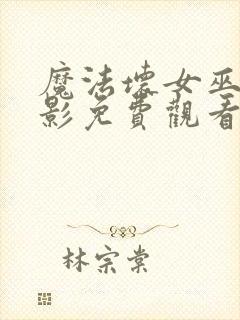 魔法壞女巫
影免費觀看
林宗棠